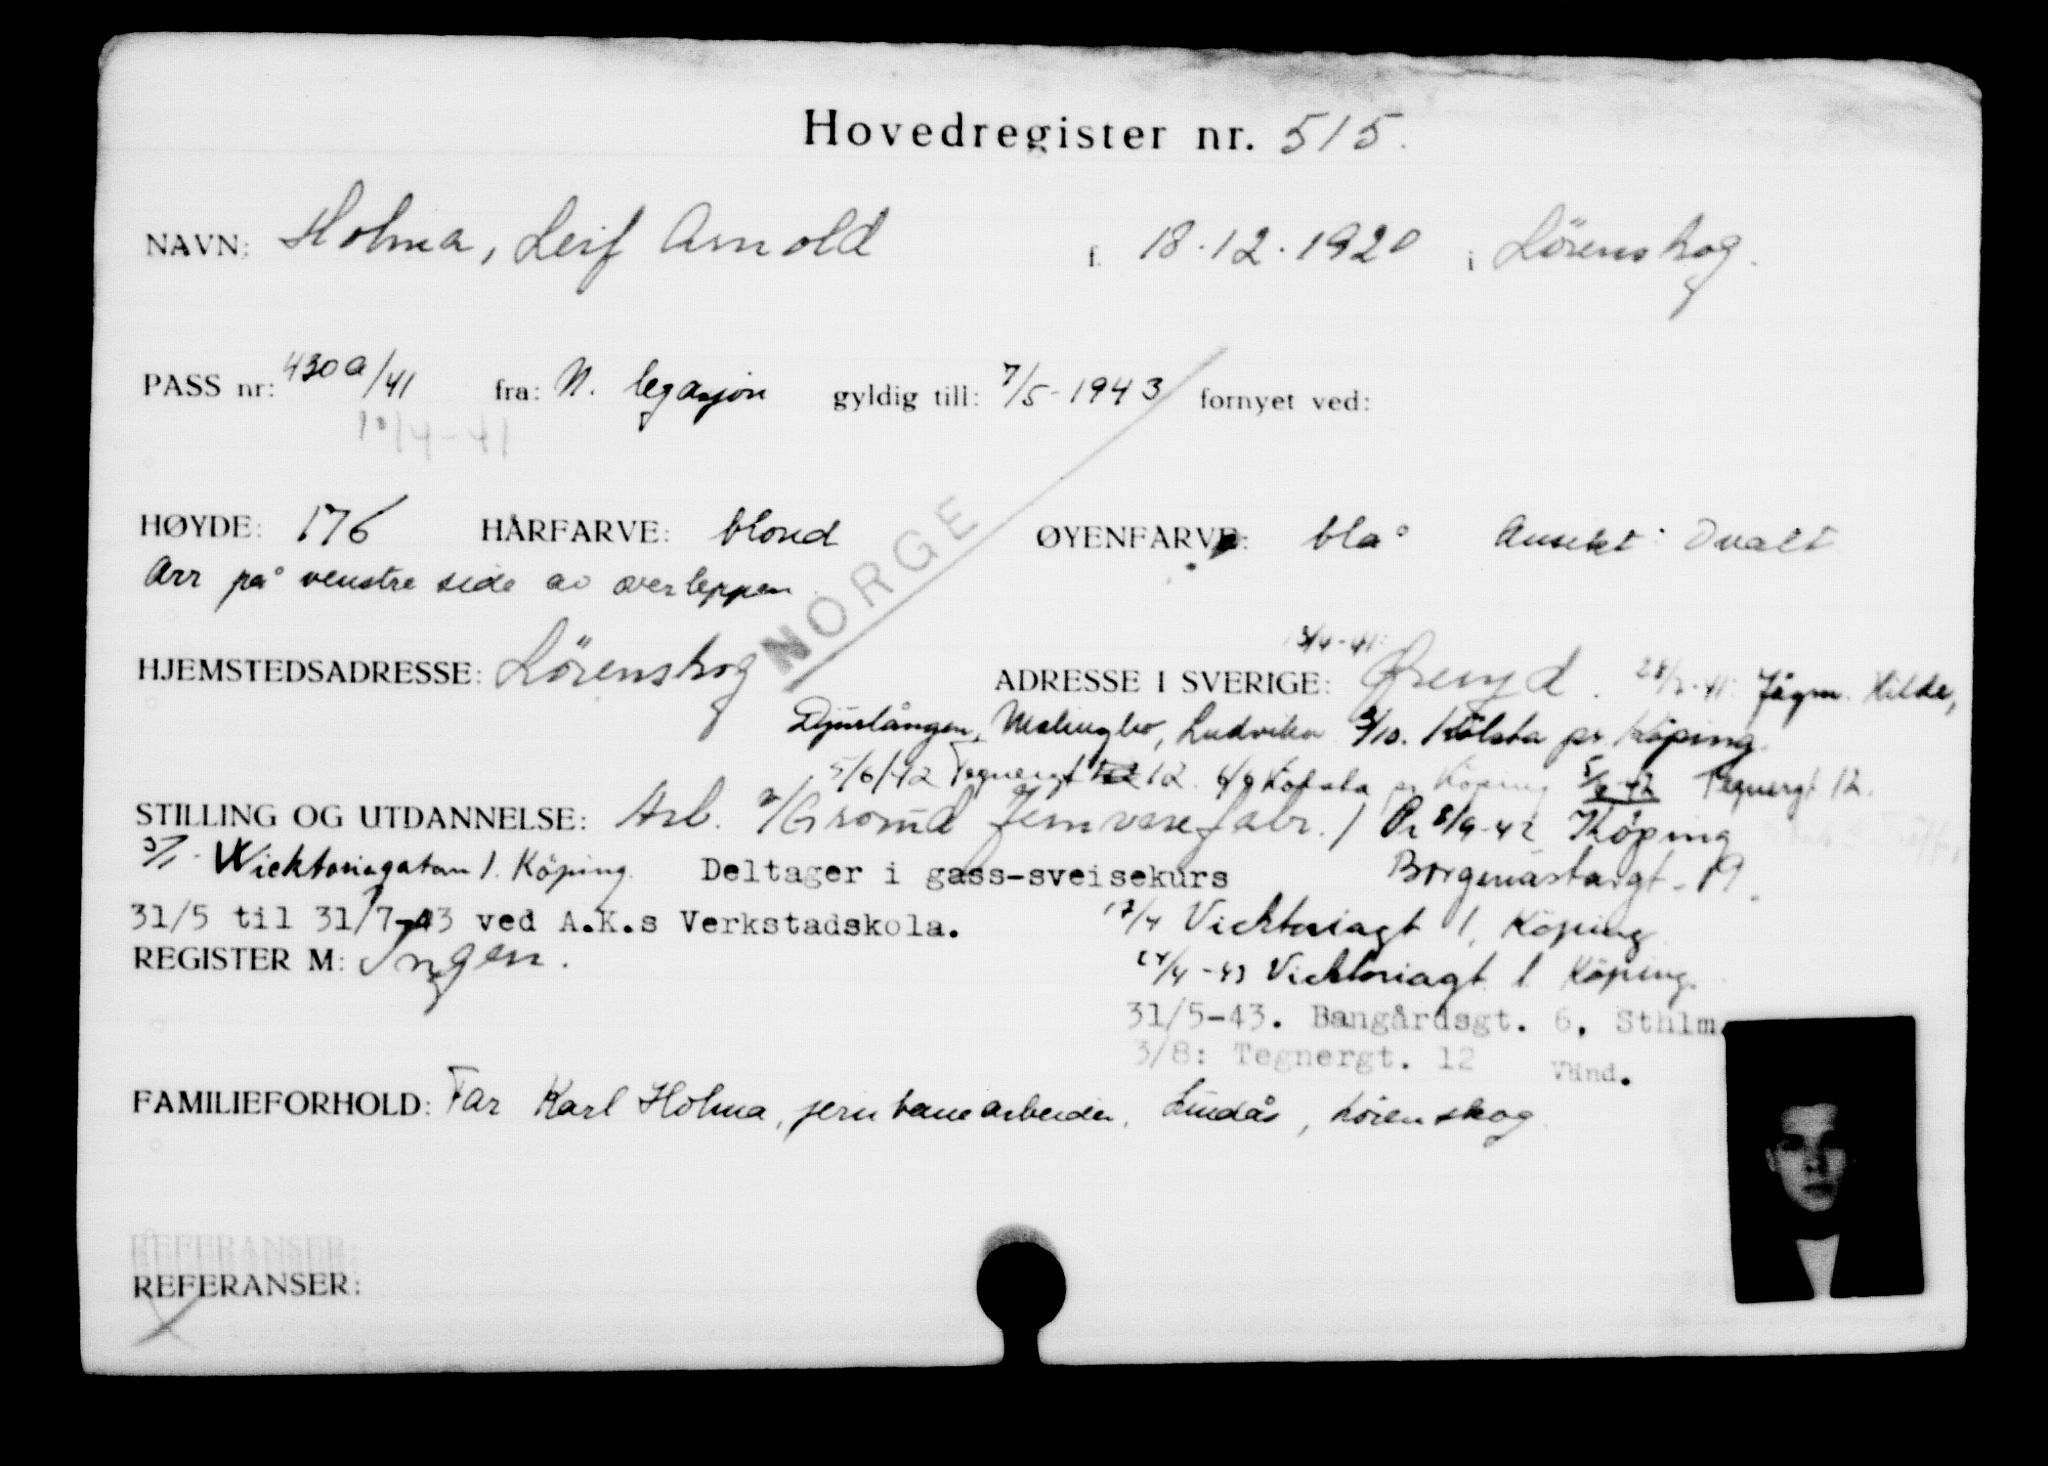 Hovedregister nr. 515.
NAVN: Holma, Leif Arnold f. 18.12.1920 i Lörenskog.
PASS nr: 430a/41 fra: N. legasjon gyldig till: 7/5-1943 fornyet ved:
10/4-41
HØYDE: 176 HÅRFARVE: blond ØYENFARVE: blå Ansikt: Ovalt
Arr på venstre side av overleppen
NORGE
13/4-41:
HJEMSTEDSADRESSE: Lörenskog ADRESSE I SVERIGE: Öreryd. Jägm. Hilde,
Djurlången, Malingbo, Ludvika 3/10. Kölsta pr. Köping.
5/6/42 Tegnergt 12. Köping Tegnergt. 12.
STILLING OG UTDANNELSE: Arb. jernvarefabr. / 8/9-42 Köping
Wicktoriagatan 1. Köping. Deltager i gass-sveisekurs Borgmästargt. 19.
31/5 til 31/7-43 ved A.K.s Verkstadskola. 17/4 Vicktoriagt 1, Köping
REGISTER M: Ingen. /4-43 Vicktoriagt 1 Köping.
31/5-43. Bangårdsgt. 6, Sthlm
3/8: Tegnergt. 12 Vänd.
FAMILIEFORHOLD: Far Karl Holma, jernbanearbeider, Lindås, Lörenskog.
REFERANSER:
REFERANSER: